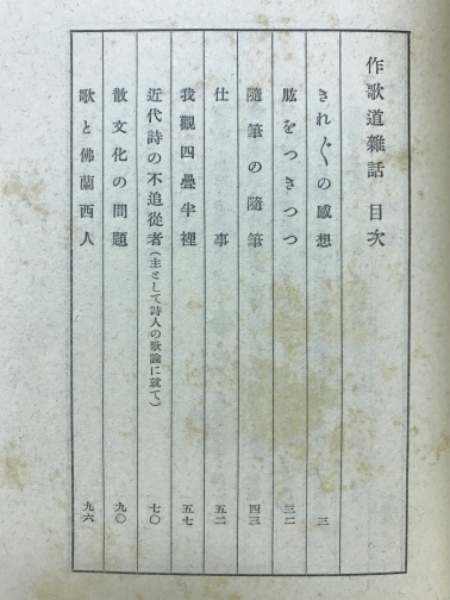 作歌道雜話 目次
きれ〴〵の感想 三
肱をつきつつ 三二
隨筆の隨筆 四三
仕事 五二
我觀四疊半裡 五七
近代詩の不追從者(主として詩人の歌論に就て) 七〇
散文化の問題 九〇
歌と佛蘭西人 九六